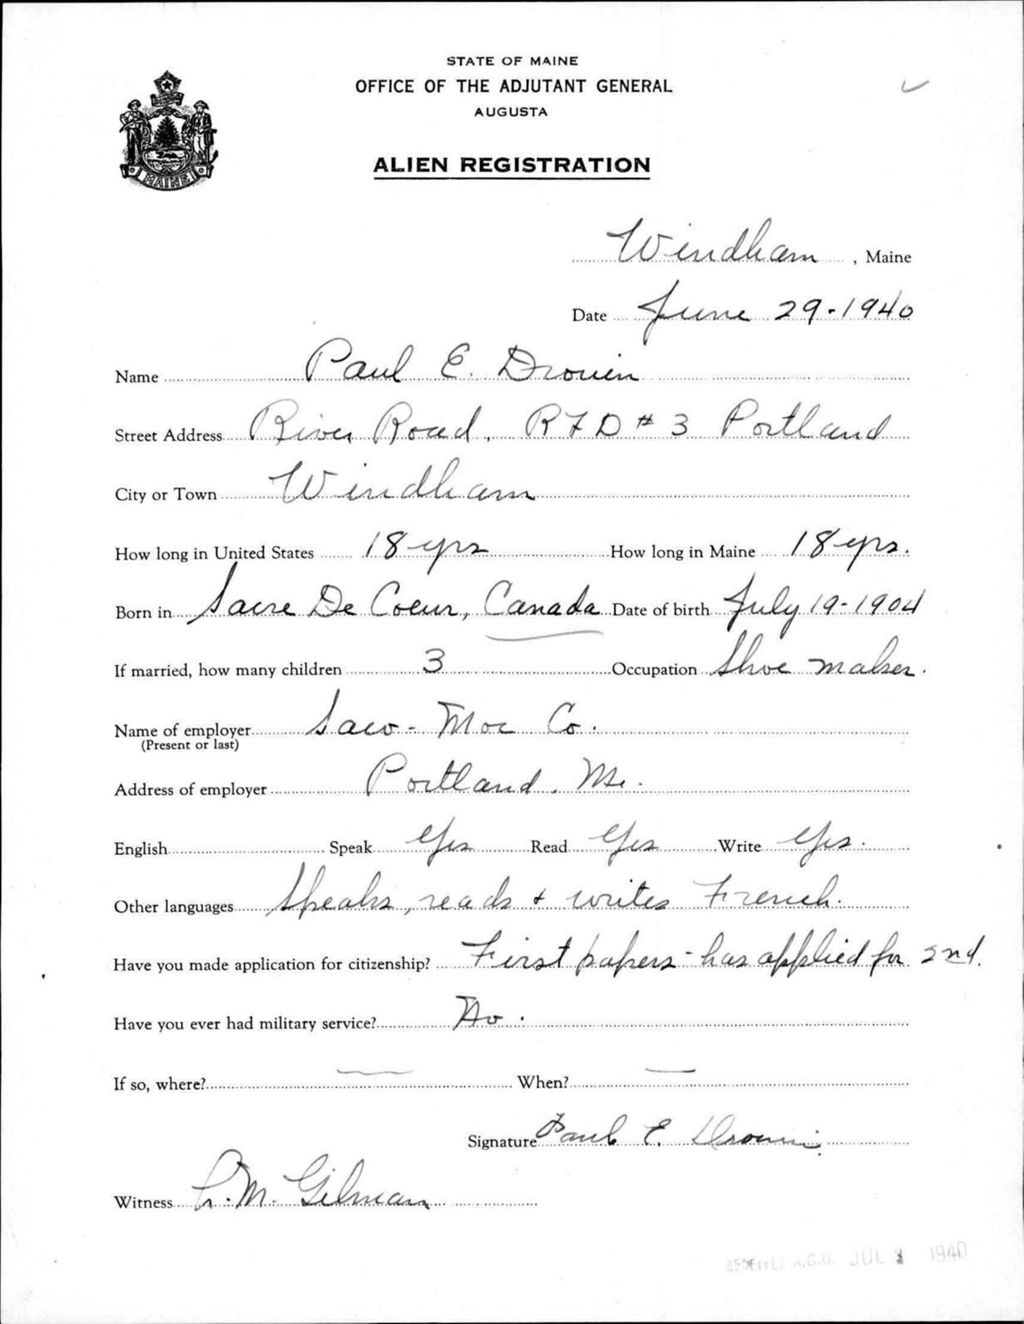 STATE OF MAINE
OFFICE OF THE ADJUTANT GENERAL
AUGUSTA
ALIEN REGISTRATION
MAINE
Windham, Maine
Date June 29-1940
Name Paul E. Drouin
Street Address River Road, RFD # 3 Portland
City or Town Windham
How long in United States 18 yrs How long in Maine 18 yrs.
Born in Sacre De Coeur, Canada Date of birth July 19-1904
If married, how many children 3 Occupation Shoe maker.
Name of employer Saco-Moc Co.
(Present or last)
Address of employer Portland, Me.
English Speak Yes Read Yes Write Yes.
Other languages Speaks, reads + writes French.
Have you made application for citizenship? First papers - has applied for 2nd.
Have you ever had military service? No.
If so, where? — When? —
Signature Paul E. Drouin
Witness M. Gilman
RECEIVED A.G.O. JUL 1940